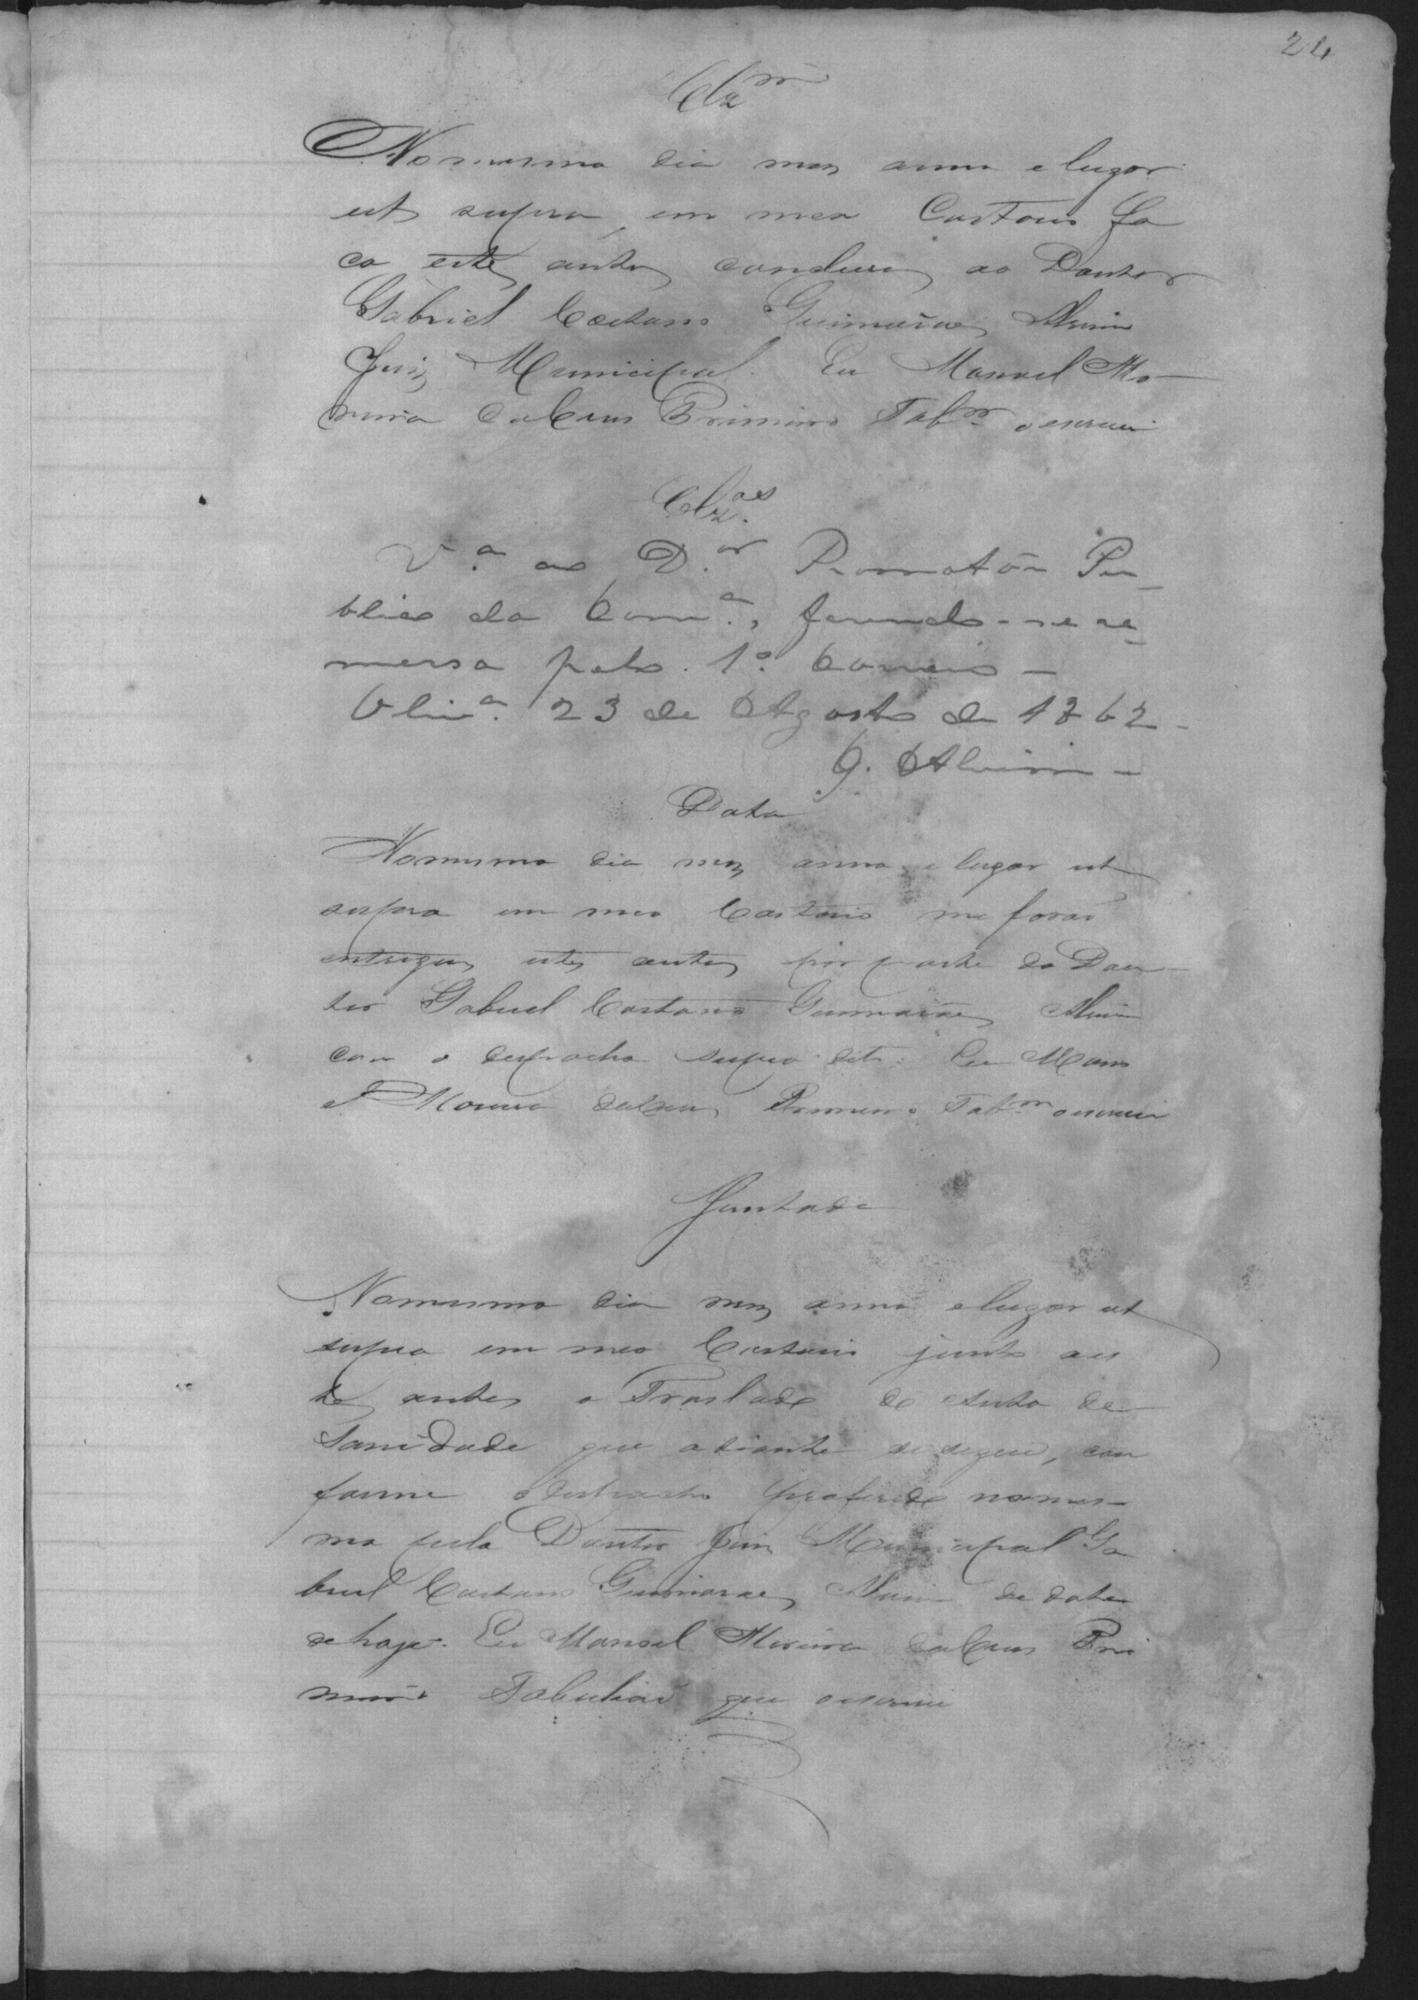 24
Clz.m
No mesmo dia mez anno e lugar
ut supra em meu Cartorio fa
ço estes autos concluzos ao Doutor
Gabriel Caetano Guimarães Alvim
Juiz Municipal. Eu Manoel Mo
reira da Cruz Primeiro Tab.m o escrevi
Clz.os
V.a ao D.or Promotôr Pu_
blico da Com.a, fazendo-se re_
messa pelo 1.o Correio _
Oliv.a 23 de Agosto de 1862_
G. Alvim _
Data
No mesmo dia mez anno e lugar ut
supra em meu Cartorio me forão
entregues estes autos por parte do Dou_
tor Gabriel Caetano Guimarães Alvim
com o despacho supra dito. Eu Mano
el Moreira da Cruz Primeiro Tab.m o escrevi
Juntada
No mesmo dia mez anno e lugar ut
supra em meu Cartorio junto aes
tes autos o Traslado do Auto de
Sanidade que adiante se segue, con
forme o despacho proferido no mes_
mo pelo Doutor Juiz Municipal Ga
briel Caetano Guimarães Alvim de data
de hoje. Eu Manoel Moreira da Cruz Pri
meiro Tabelião que o escrevi